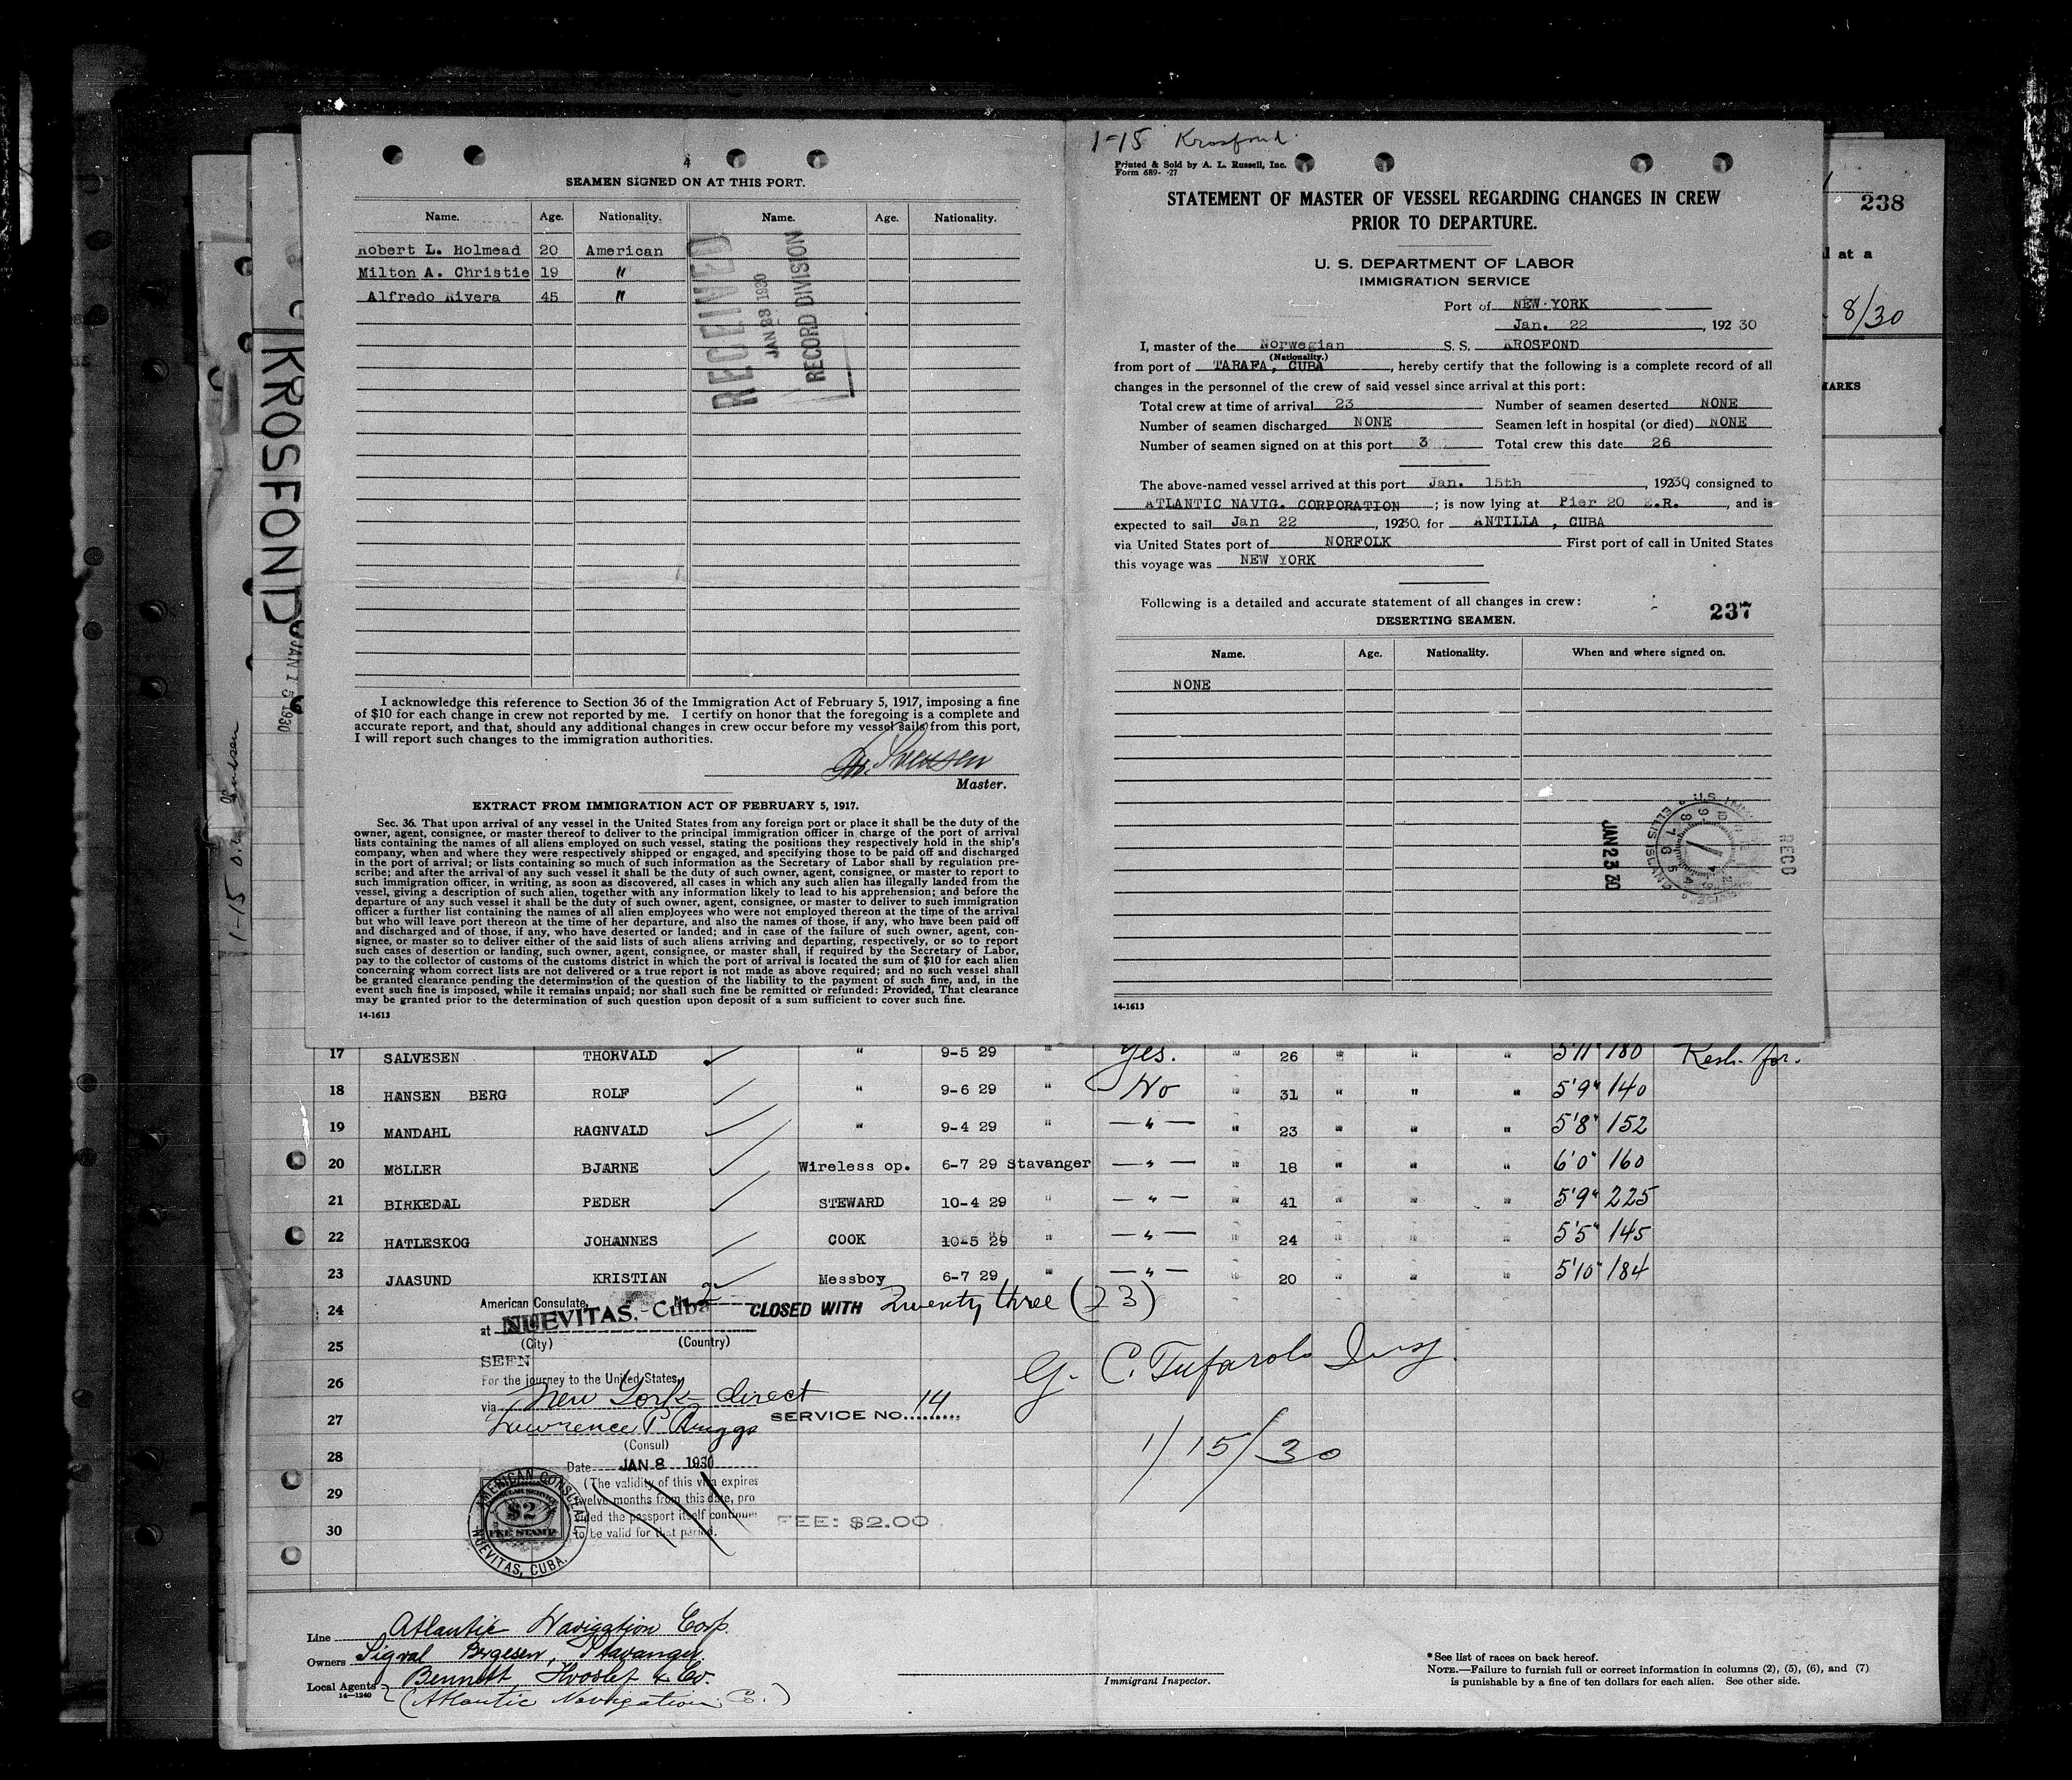 4
SEAMEN SIGNED ON AT THIS PORT.
Name. Age. Nationality. Name. Age. Nationality.
Robert L. Holmead 20 American
Milton A. Christie 19 "
Alfredo Rivera 45 "
RECEIVED
JAN 23 1930
RECORD DIVISION
I acknowledge this reference to Section 36 of the Immigration Act of February 5, 1917, imposing a fine
of $10 for each change in crew not reported by me. I certify on honor that the foregoing is a complete and
accurate report, and that, should any additional changes in crew occur before my vessel sails from this port,
I will report such changes to the immigration authorities.
Svensen
Master.
EXTRACT FROM IMMIGRATION ACT OF FEBRUARY 5, 1917.
Sec. 36. That upon arrival of any vessel in the United States from any foreign port or place it shall be the duty of the
owner, agent, consignee, or master thereof to deliver to the principal immigration officer in charge of the port of arrival
lists containing the names of all aliens employed on such vessel, stating the positions they respectively hold in the ship's
company, when and where they were respectively shipped or engaged, and specifying those to be paid off and discharged
in the port of arrival; or lists containing so much of such information as the Secretary of Labor shall by regulation pre-
scribe; and after the arrival of any such vessel it shall be the duty of such owner, agent, consignee, or master to report to
such immigration officer, in writing, as soon as discovered, all cases in which any such alien has illegally landed from the
vessel, giving a description of such alien, together with any information likely to lead to his apprehension; and before the
departure of any such vessel it shall be the duty of such owner, agent, consignee, or master to deliver to such immigration
officer a further list containing the names of all alien employees who were not employed thereon at the time of the arrival
but who will leave port thereon at the time of her departure, and also the names of those, if any, who have been paid off
and discharged and of those, if any, who have deserted or landed; and in case of the failure of such owner, agent, con-
signee, or master so to deliver either of the said lists of such aliens arriving and departing, respectively, or so to report
such cases of desertion or landing, such owner, agent, consignee, or master shall, if required by the Secretary of Labor,
pay to the collector of customs of the customs district in which the port of arrival is located the sum of $10 for each alien
concerning whom correct lists are not delivered or a true report is not made as above required; and no such vessel shall
be granted clearance pending the determination of the question of the liability to the payment of such fine, and, in the
event such fine is imposed, while it remains unpaid; nor shall such fine be remitted or refunded: Provided, That clearance
may be granted prior to the determination of such question upon deposit of a sum sufficient to cover such fine.
14-1613
1-15 Krosfond
Printed & Sold by A. L. Russell, Inc.
Form 689- -27
STATEMENT OF MASTER OF VESSEL REGARDING CHANGES IN CREW
PRIOR TO DEPARTURE.
U. S. DEPARTMENT OF LABOR
IMMIGRATION SERVICE
Port of NEW YORK
Jan. 22, 192 30
I, master of the Norwegian S. S. KROSFOND
(Nationality.)
from port of TARAFA, CUBA, hereby certify that the following is a complete record of all
changes in the personnel of the crew of said vessel since arrival at this port:
Total crew at time of arrival 23 Number of seamen deserted NONE
Number of seamen discharged NONE Seamen left in hospital (or died) NONE
Number of seamen signed on at this port 3 Total crew this date 26
The above-named vessel arrived at this port Jan. 15th, 19230, consigned to
ATLANTIC NAVIG. CORPORATION; is now lying at Pier 20 E.R., and is
expected to sail Jan 22, 19230. for ANTILLA, CUBA
via United States port of NORFOLK First port of call in United States
this voyage was NEW YORK
Following is a detailed and accurate statement of all changes in crew:
237
DESERTING SEAMEN.
Name. Age. Nationality. When and where signed on.
NONE
JAN 23 30
REC'D
14-1613
238
d at a
8/30
MARKS
KROSFOND
JAN 15 1930
1-15
17 SALVESEN THORVALD " 9-5 29 " Yes. " 26 " " " 5'11" 180
18 HANSEN BERG ROLF " 9-6 29 " No " 31 " " " 5'9" 140
19 MANDAHL RAGNVALD " 9-4 29 " " " 23 " " " 5'8" 152
20 MöLLER BJARNE Wireless op. 6-7 29 Stavanger " " 18 " " " 6'0" 160
21 BIRKEDAL PEDER STEWARD 10-4 29 " " " 41 " " " 5'9" 225
22 HATLESKOG JOHANNES COOK 10-5 29 " " " 24 " " " 5'5" 145
23 JAASUND KRISTIAN Messboy 6-7 29 " " " 20 " " " 5'10" 184
24
25
26
27
28
29
30
American Consulate,
at NUEVITAS, Cuba
(City) (Country)
SEEN
For the journey to the United States,
via New York direct
Lawrence P. Briggs
(Consul)
Date JAN 8 1930
(The validity of this visa expires
twelve months from this date, pro
vided the passport itself continues
to be valid for that period.
CLOSED WITH Twenty three (23)
G. C. Tufarolo Insp.
1/15/30
SERVICE NO. 14
FEE: $2.00
AMERICAN CONSULATE
NUEVITAS, CUBA.
$2
FEE STAMP
Line Atlantic Navigation Corp.
Owners Sigval Bergesen, Stavanger.
Local Agents Bennett Hvoslef & Co.
(Atlantic Navigation Co.)
14-1240
Immigrant Inspector.
* See list of races on back hereof.
NOTE.—Failure to furnish full or correct information in columns (2), (5), (6), and (7)
is punishable by a fine of ten dollars for each alien. See other side.